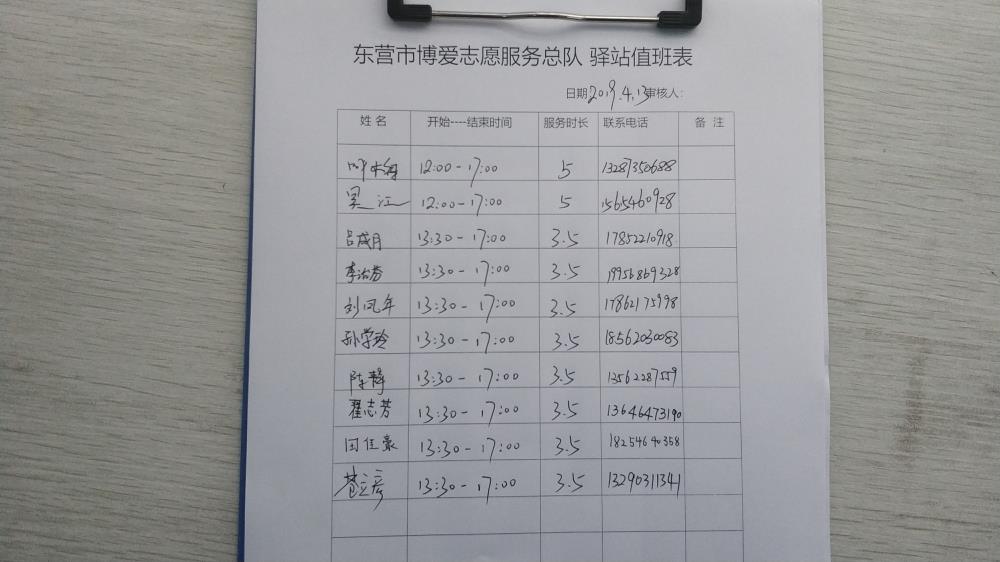 东营市博爱志愿服务总队 驿站值班表
日期2019.4.13审核人:
姓名 开始----结束时间 服务时长 联系电话 备 注
12:00-17:00 5 13287350688
吴江 12:00-17:00 5 1565460928
吕成月 13:30-17:00 3.5 17852210918
李治芬 13:30-17:00 3.5 19956869328
刘凤年 13:30-17:00 3.5 17862175998
孙学玲 13:30-17:00 3.5 18562030083
陈静 13:30-17:00 3.5 13562287559
翟志芳 13:30-17:00 3.5 13646473190
田佳豪 13:30-17:00 3.5 18254640358
13:30-17:00 3.5 13290311341